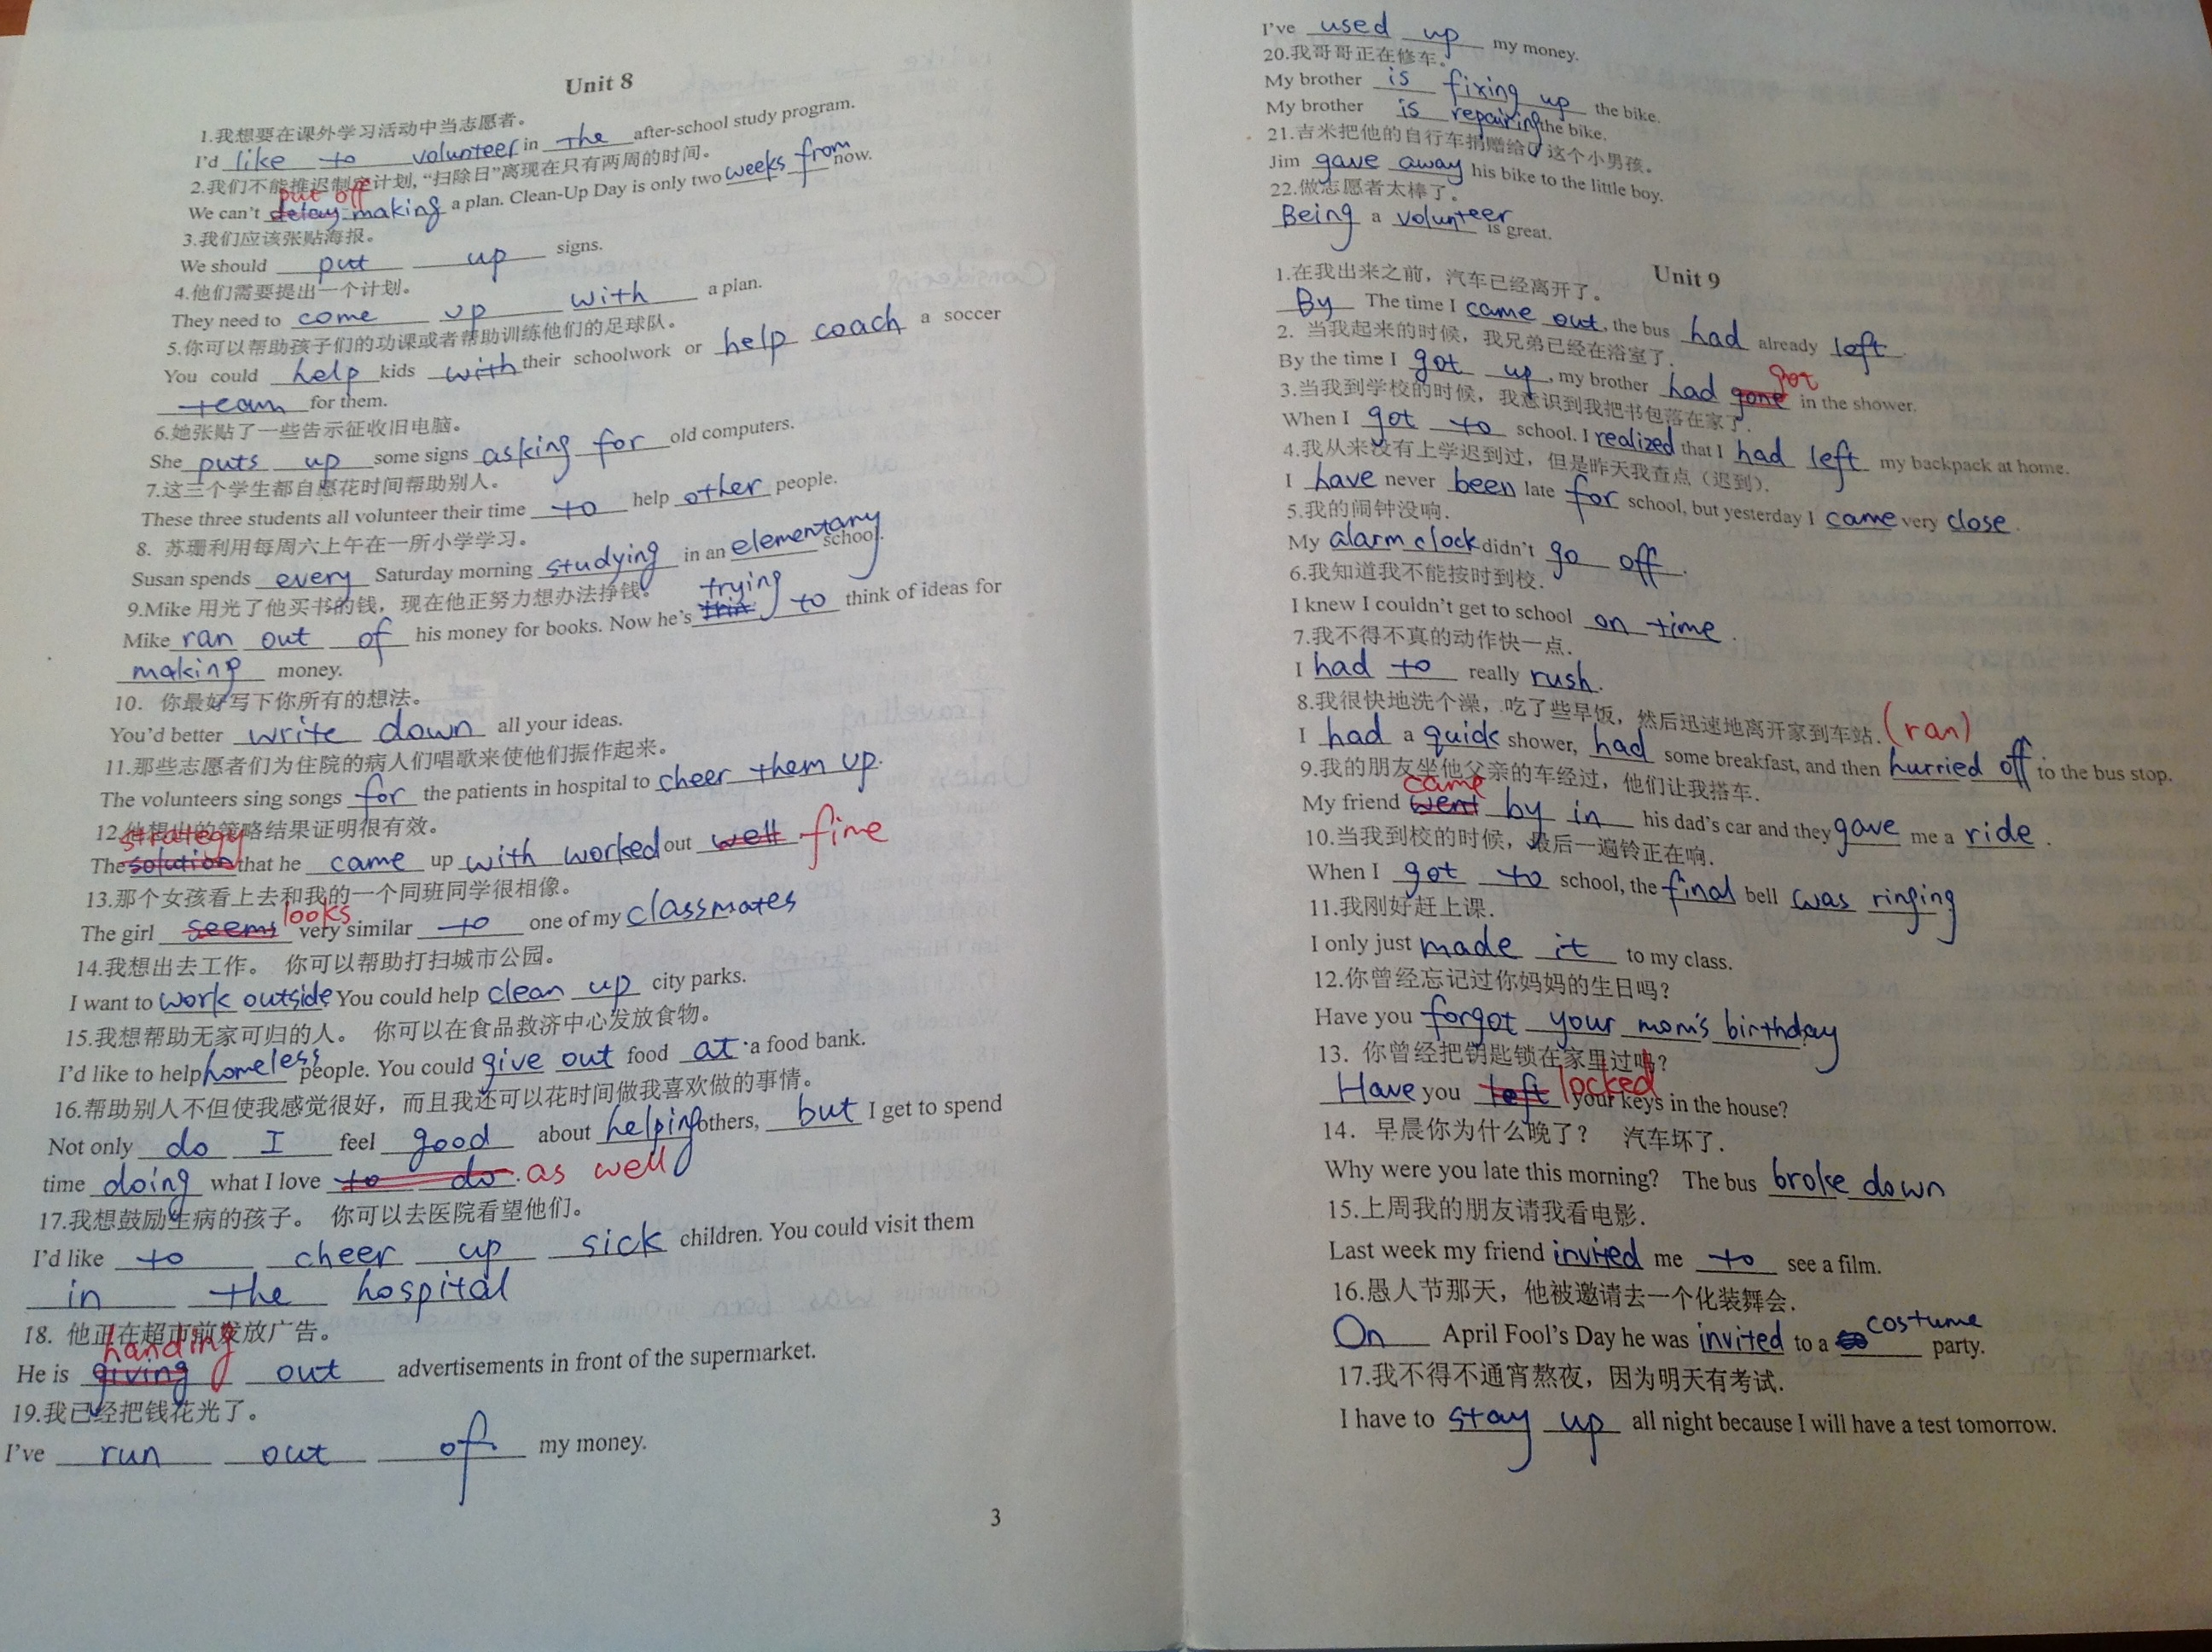 Unit 8
1.我想要在课外学习活动中当志愿者。
I'd like to volunteer in the after-school study program.
2.我们不能推迟制定计划,“扫除日”离现在只有两周的时间。
put off
We can't delay making a plan. Clean-Up Day is only two weeks from now.
3.我们应该张贴海报。
We should put up signs.
4.他们需要提出一个计划。
They need to come up with a plan.
5.你可以帮助孩子们的功课或者帮助训练他们的足球队。
You could help kids with their schoolwork or help coach a soccer
team for them.
6.她张贴了一些告示征收旧电脑。
She puts up some signs asking for old computers.
7.这三个学生都自愿花时间帮助别人。
These three students all volunteer their time to help other people.
8. 苏珊利用每周六上午在一所小学学习。
Susan spends every Saturday morning studying in an elementary school.
9.Mike 用光了他买书的钱，现在他正努力想办法挣钱。
Mike ran out of his money for books. Now he's trying to think of ideas for
making money.
10. 你最好写下你所有的想法。
You'd better write down all your ideas.
11.那些志愿者们为住院的病人们唱歌来使他们振作起来。
The volunteers sing songs for the patients in hospital to cheer them up.
12.他想出的策略结果证明很有效。
strategy
The solution that he came up with worked out well fine
13.那个女孩看上去和我的一个同班同学很相像。
The girl seems looks very similar to one of my classmates
14.我想出去工作。 你可以帮助打扫城市公园。
I want to work outside You could help clean up city parks.
15.我想帮助无家可归的人。 你可以在食品救济中心发放食物。
I'd like to help homeless people. You could give out food at a food bank.
16.帮助别人不但使我感觉很好，而且我还可以花时间做我喜欢做的事情。
Not only do I feel good about helping others, but I get to spend
time doing what I love to do. as well
17.我想鼓励生病的孩子。 你可以去医院看望他们。
I'd like to cheer up sick children. You could visit them
in the hospital
18. 他正在超市前发放广告。
handing
He is giving out advertisements in front of the supermarket.
19.我已经把钱花光了。
I've run out of my money.
3
I've used up my money.
20.我哥哥正在修车。
My brother is fixing up the bike.
My brother is repairing the bike.
21.吉米把他的自行车捐赠给了这个小男孩。
Jim gave away his bike to the little boy.
22.做志愿者太棒了。
Being a volunteer is great.
Unit 9
1.在我出来之前，汽车已经离开了。
By The time I came out, the bus had already left.
2. 当我起来的时候，我兄弟已经在浴室了.
By the time I got up, my brother had gone got in the shower.
3.当我到学校的时候，我意识到我把书包落在家了.
When I got to school. I realized that I had left my backpack at home.
4.我从来没有上学迟到过，但是昨天我查点（迟到）.
I have never been late for school, but yesterday I came very close.
5.我的闹钟没响.
My alarm clock didn't go off.
6.我知道我不能按时到校.
I knew I couldn't get to school on time.
7.我不得不真的动作快一点.
I had to really rush.
8.我很快地洗个澡，吃了些早饭，然后迅速地离开家到车站. (ran)
I had a quick shower, had some breakfast, and then hurried off to the bus stop.
9.我的朋友坐他父亲的车经过，他们让我搭车.
came
My friend went by in his dad's car and they gave me a ride.
10.当我到校的时候，最后一遍铃正在响.
When I got to school, the final bell was ringing
11.我刚好赶上课.
I only just made it to my class.
12.你曾经忘记过你妈妈的生日吗?
Have you forgot your mom's birthday
13. 你曾经把钥匙锁在家里过吗?
Have you left locked your keys in the house?
14. 早晨你为什么晚了? 汽车坏了.
Why were you late this morning? The bus broke down
15.上周我的朋友请我看电影.
Last week my friend invited me to see a film.
16.愚人节那天，他被邀请去一个化装舞会.
On April Fool's Day he was invited to a costume party.
17.我不得不通宵熬夜，因为明天有考试.
I have to stay up all night because I will have a test tomorrow.